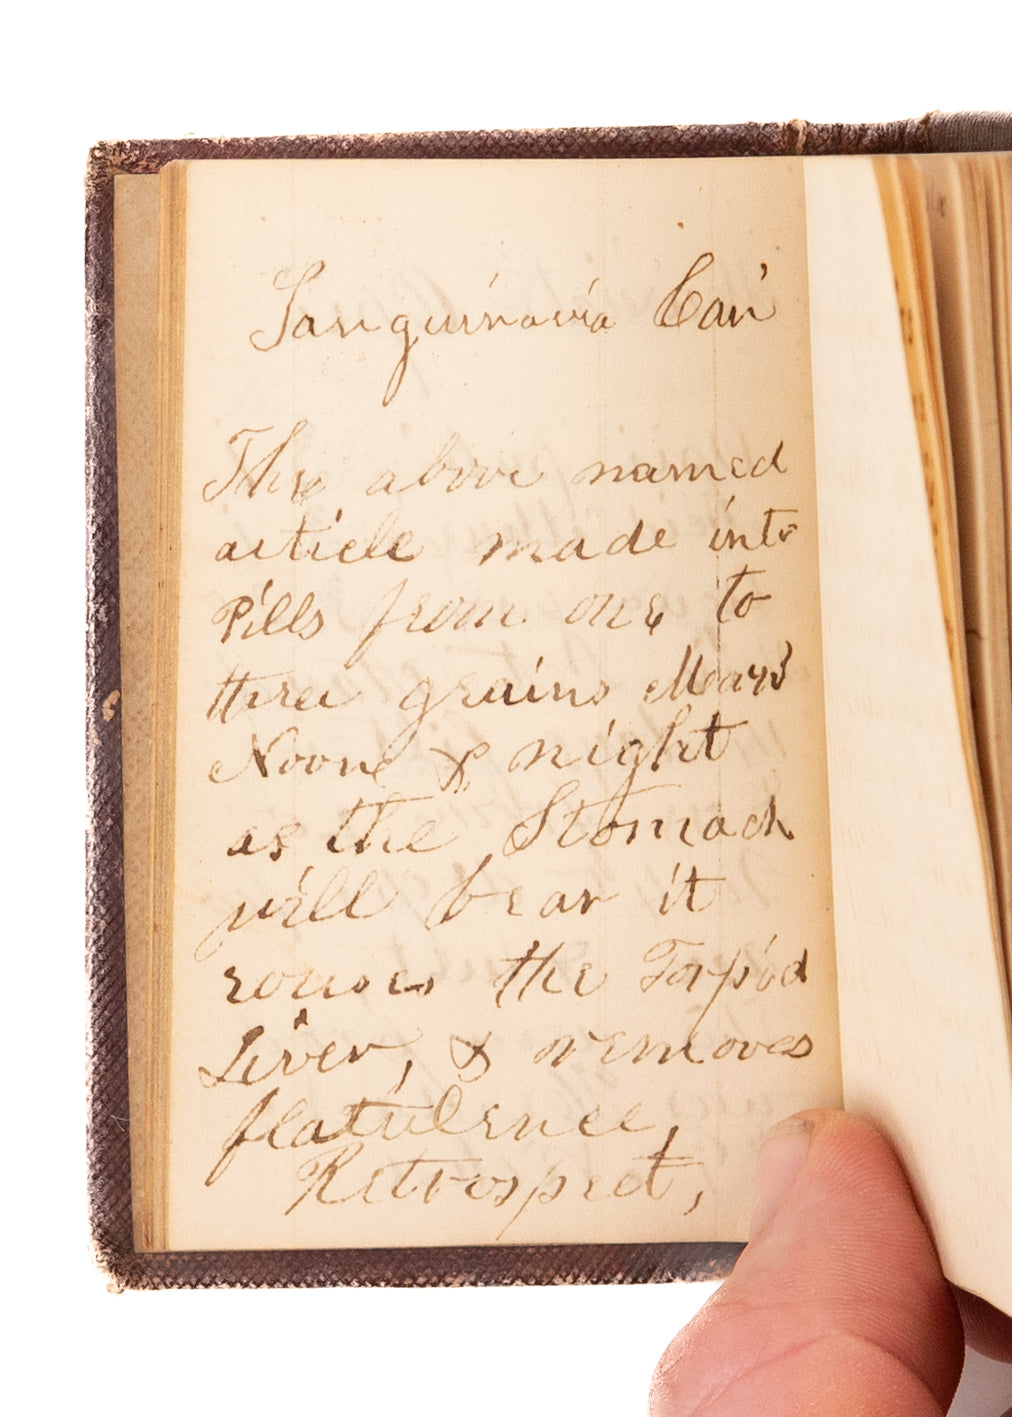 Sanguinaria Can
The above named
article made into
Pills from one to
three grains Morn
Noone & night
as the Stomach
will bear it
rouses the Torpid
Liver, & removes
flatulence,
Retrospect,